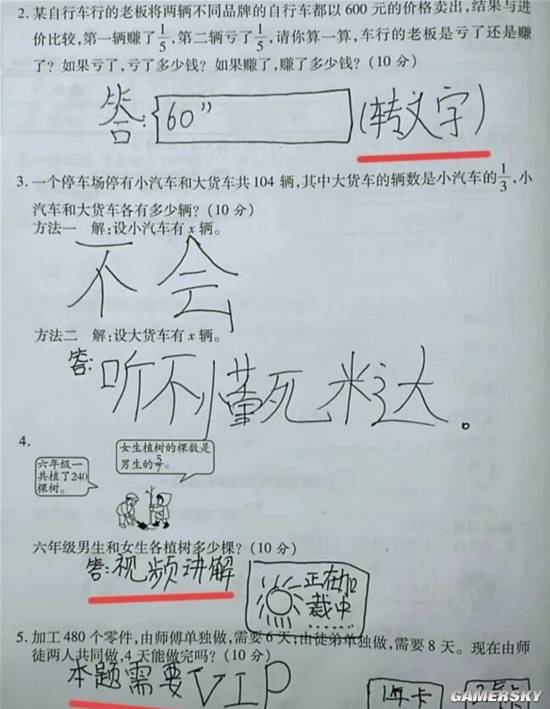 2. 某自行车行的老板将两辆不同品牌的自行车都以 600 元的价格卖出,结果与进
价比较,第一辆赚了1/5,第二辆亏了1/5,请你算一算,车行的老板是亏了还是赚
了？如果亏了,亏了多少钱？如果赚了,赚了多少钱？(10 分)
答: 60" (转文字)
3. 一个停车场停有小汽车和大货车共 104 辆,其中大货车的辆数是小汽车的1/3,小
汽车和大货车各有多少辆？(10 分)
方法一 解:设小汽车有 x 辆。
不会
方法二 解:设大货车有 x 辆。
答: 听不懂死米达。
4.
女生植树的棵数是
男生的5/7。
六年级一
共植了240
棵树。
六年级男生和女生各植树多少棵？(10 分)
答: 视频讲解
正在加
载中
5. 加工 480 个零件,由师傅单独做,需要 6 天;由徒弟单独做,需要 8 天。现在由师
徒两人共同做,4 天能做完吗？(10 分)
本题需要VIP
GAMERSKY